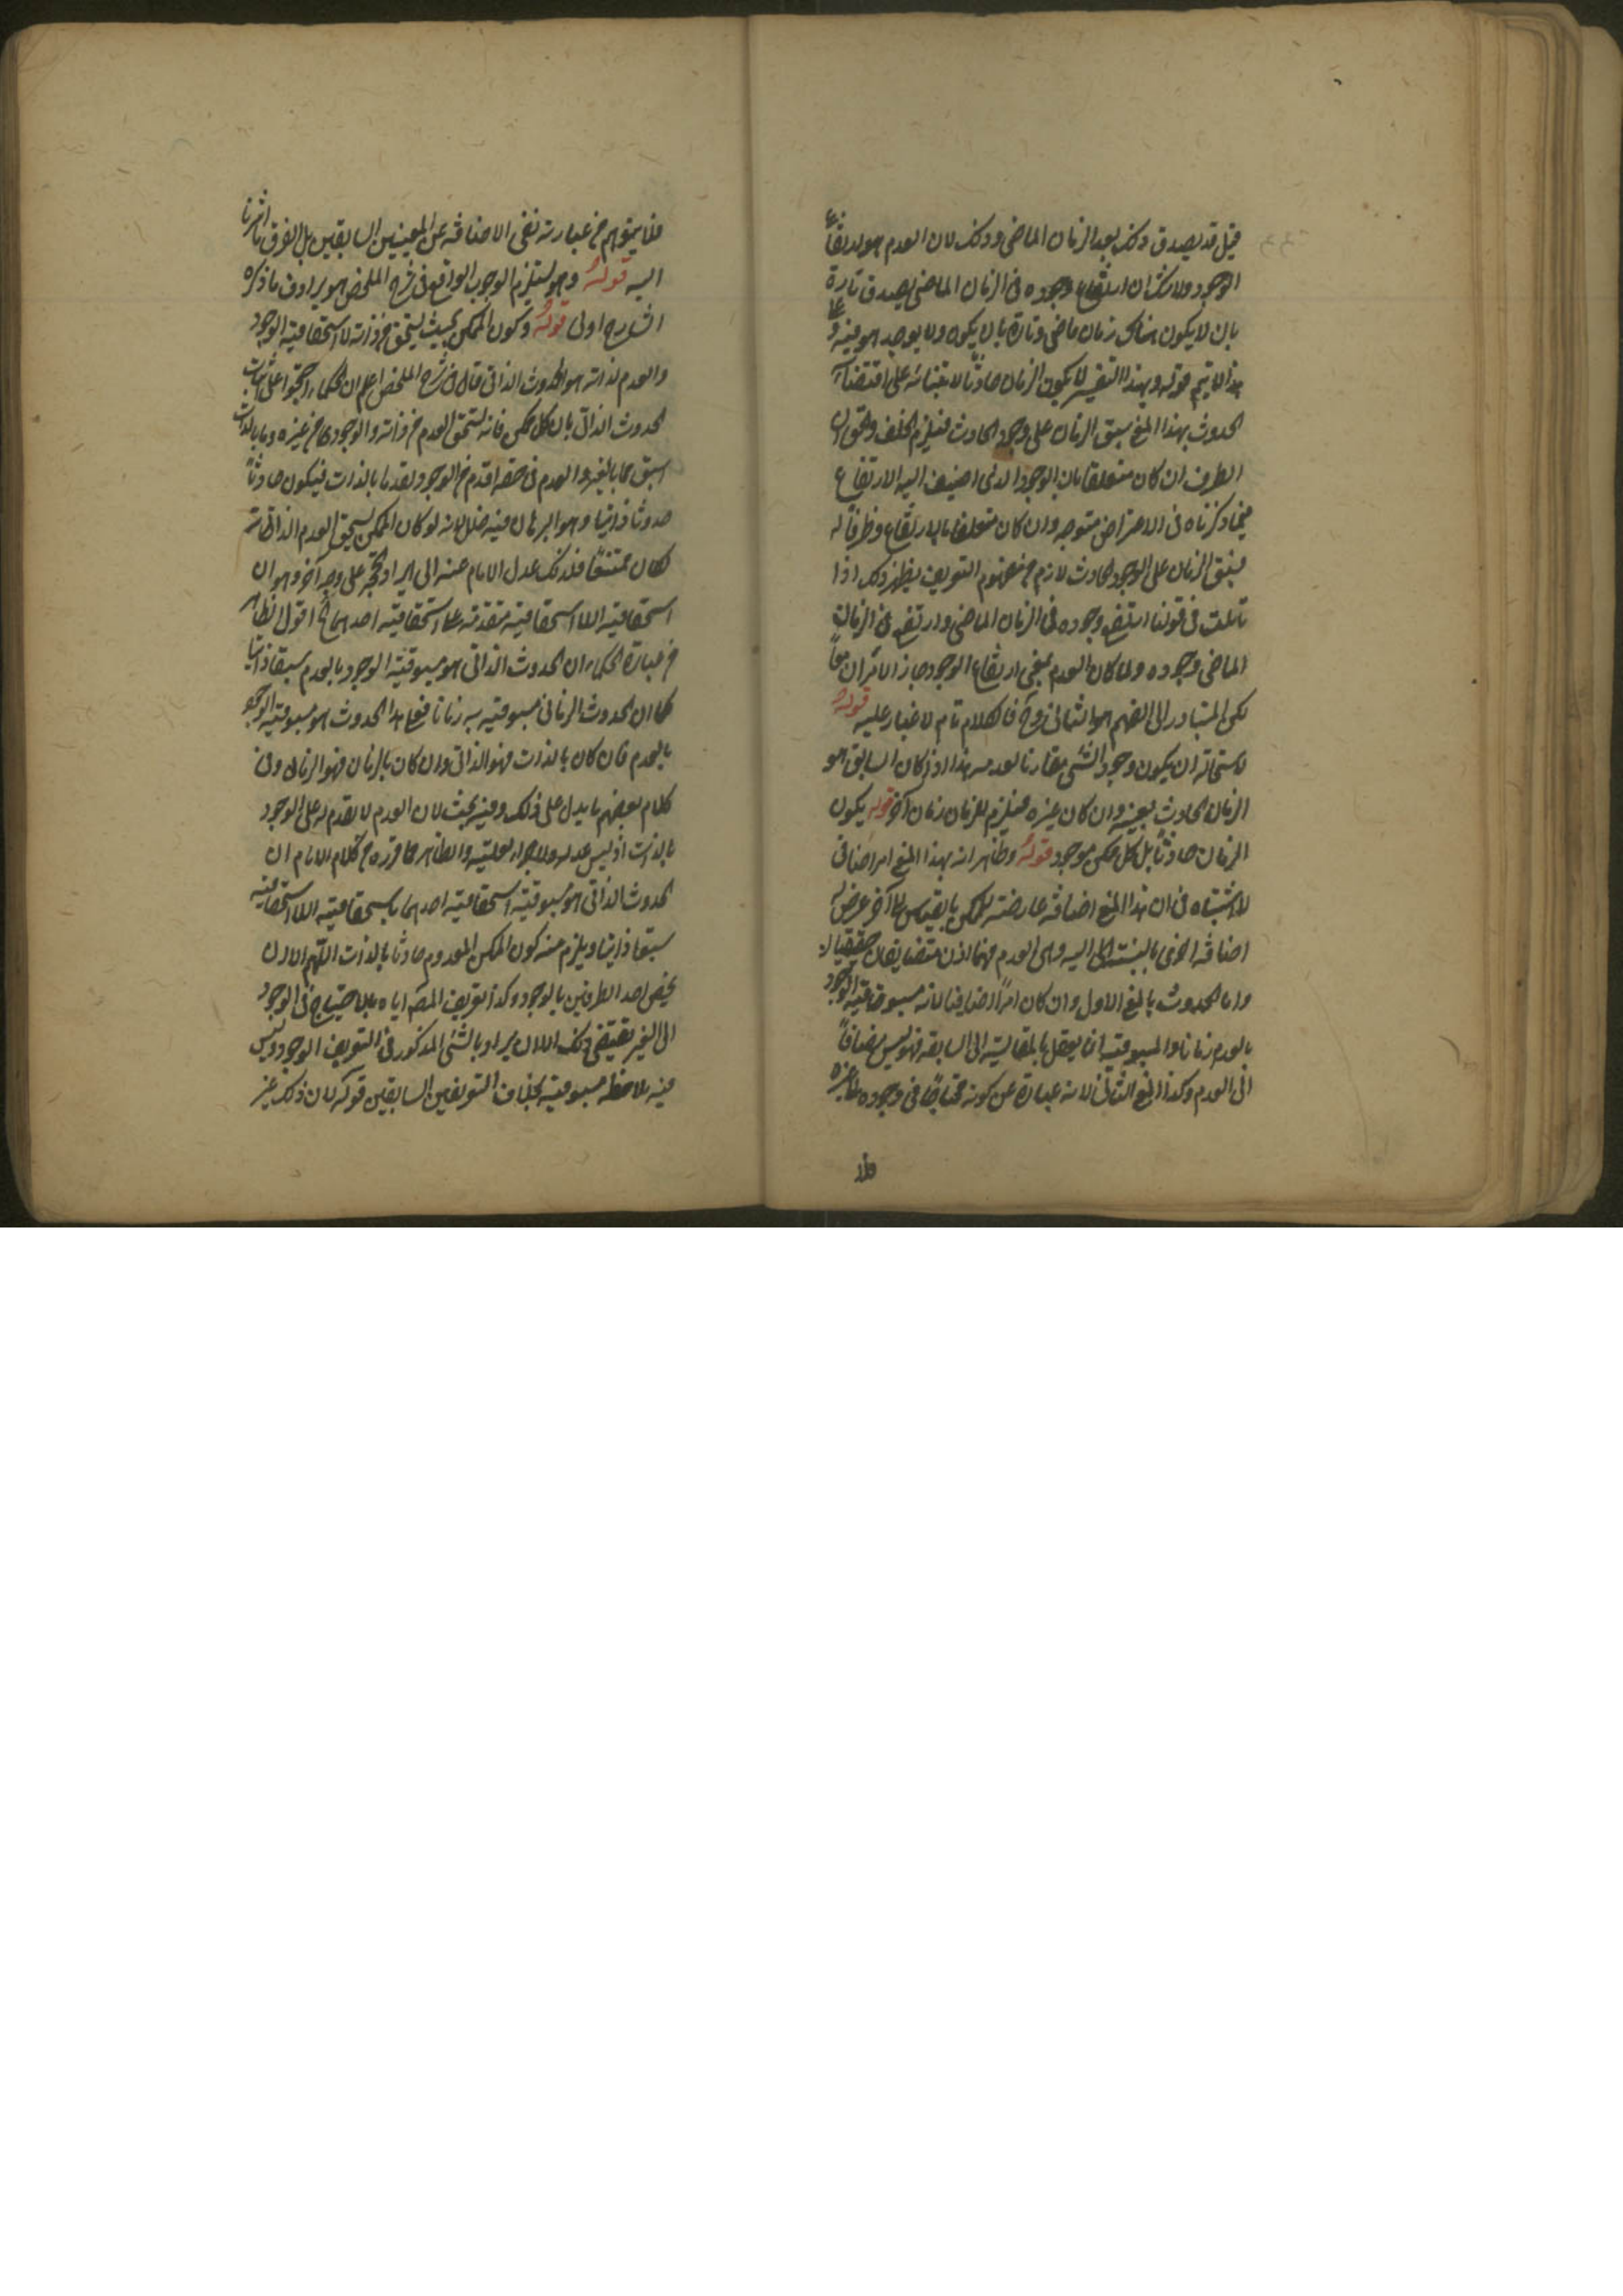 قيل قد يصدق ذلك بعد الزمان الماضى وذلك لان العدم هو ارتفاع
الوجود ولا شك ان ارتفاع وجوده فى الزمان الماضى يصدق تارة
بان لا يكون هناك زمان ماضى وتارة بان يكون ولا يوجد هو فيه و
هذا لا يتم قوله وبهذا التفسير لا يكون الزمان حادثا لابتنائه على اقتضاء
الحدوث بهذا المعنى سبق الزمان على وجود الحادث فيلزم الخلف والحق ان
الظرف ان كان متعلقا بالوجود الذى اضيف اليه الارتفاع
فما ذكرناه فى الاعتراض متوجه وان كان متعلقا بالارتفاع وظرفا له
فسبق الزمان على الوجود الحادث لازم من مفهوم التعريف يظهر ذلك اذا
تأملت فى قولنا ارتفع وجوده فى الزمان الماضى وارتفع فى الزمان
الماضى وجوده ولما كان العدم بمعنى ارتفاع الوجود جاز الامران معا
لكن المتبادر الى الفهم هو الثانى وح فالكلام تام لا غبار عليه قوله
لاستحالة ان يكون وجود الشئ مقارنا لعدمه هذا اذا كان السابق هو
الزمان الحادث بعينه وان كان غيره فيلزم للزمان زمان آخر قوله يكون
الزمان حادثا بل كل ممكن موجود قوله وظاهر انه بهذا المعنى امر اضافى
لا اشتباه فى ان هذا المعنى اضافة عارضة للممكن بالقياس الى آخر عرض له
اضافة اخرى بالنسبة اليه وهى العدم فهما اذن متضايفان حقيقيان
واما الحدوث بالمعنى الاول وان كان امرا اضافيا لانه مسبوقية الوجود
بالعدم زمانا والمسبوقية انما يعقل بالمقايسة الى السابقة فهو ليس مضافا
الى العدم وكذا المعنى الثانى لانه عبارة عن كونه محتاجا فى وجوده الى غيره
فلا
فلا يتوهم من عبارته نفى الاضافة عن المعنيين السابقين بل الفرق ما اشرنا
اليه قوله وهو يستلزم الوجوب الواقع فى شرح الملخص هو يرادف ما ذكره
الشارح اولى قوله وكون الممكن بحيث يستحق من ذاته لا استحقاقية الوجود
والعدم لذاته هو الحدوث الذاتى قال فى شرح الملخص اعلم ان الحكماء احتجوا على اثبات
الحدوث الذاتى بان كل ممكن فانه يستحق العدم من ذاته والوجود من غيره وما بالذات
اسبق مما بالغير والعدم فى حقه اقدم من الوجود تقدما بالذات فيكون حادثا
حدوثا ذاتيا وهو البرهان فيه خلل لانه لو كان الممكن يستحق العدم لذاته
لكان ممتنعا فلذلك عدل الامام عنه الى ايراد الحجة على وجه آخر وهو ان
استحقاقية اللااستحقاقية متقدمة على استحقاقية احدهما اقول الظاهر
من عبارة الحكماء ان الحدوث الذاتى هو مسبوقية الوجود بالعدم سبقا ذاتيا
كما ان الحدوث الزمانى مسبوقيته به زمانا فعلى هذا الحدوث هو مسبوقية الوجود
بالعدم فان كان بالذات فهو الذاتى وان كان بالزمان فهو الزمانى وفى
كلام بعضهم ما يدل على ذلك وفيه بحث لان العدم لا تقدم له على الوجود
بالذات اذ ليس علة له ولا جزء لعلته والظاهر مما قرره من كلام الامام ان
الحدوث الذاتى هو مسبوقية استحقاقية احدهما باستحقاقية اللااستحقاقية
سبقا ذاتيا ويلزم منه كون الممكن المعدوم حادثا بالذات اللهم الا ان
يخص احد الطرفين بالوجود وكذا تعريف المصـ اياه بالاحتياج فى الوجود
الى الغير يقتضى ذلك الا ان يراد بالشئ المذكور فى التعريف الموجود وليس
فيه ملاحظة مسبوقية بخلاف التعريفين السابقين قوله لان ذلك غير